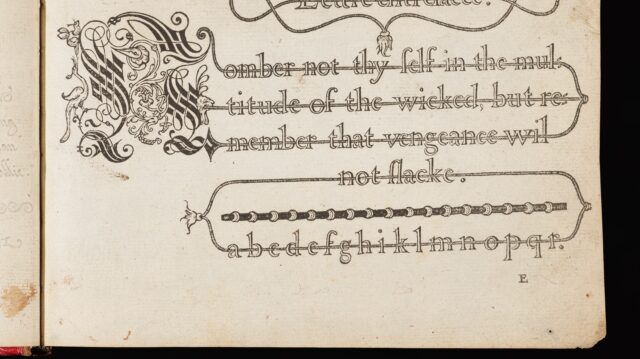 Lettre entrelacee.
Nomber not thy ſelf in the mul-
titude of the wicked, but re-
member that vengeance wil
not ſlacke.
a b c d e f g h i k l m n o p q r.
E